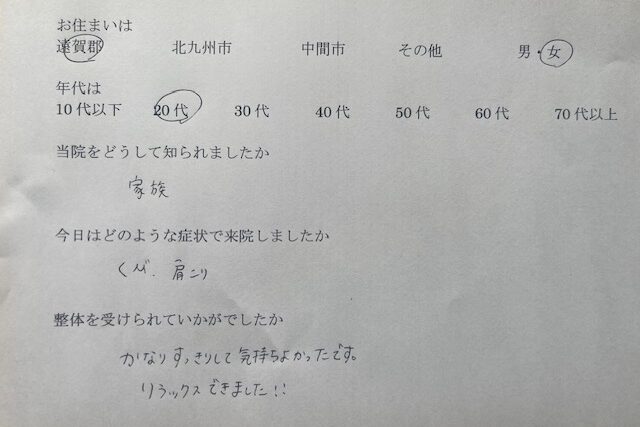 お住まいは
遠賀郡 北九州市 中間市 その他 男・女
年代は
10代以下 20代 30代 40代 50代 60代 70代以上
当院をどうして知られましたか
家族
今日はどのような症状で来院しましたか
くび、肩こり
整体を受けられていかがでしたか
かなりすっきりして気持ちよかったです。
リラックスできました!!